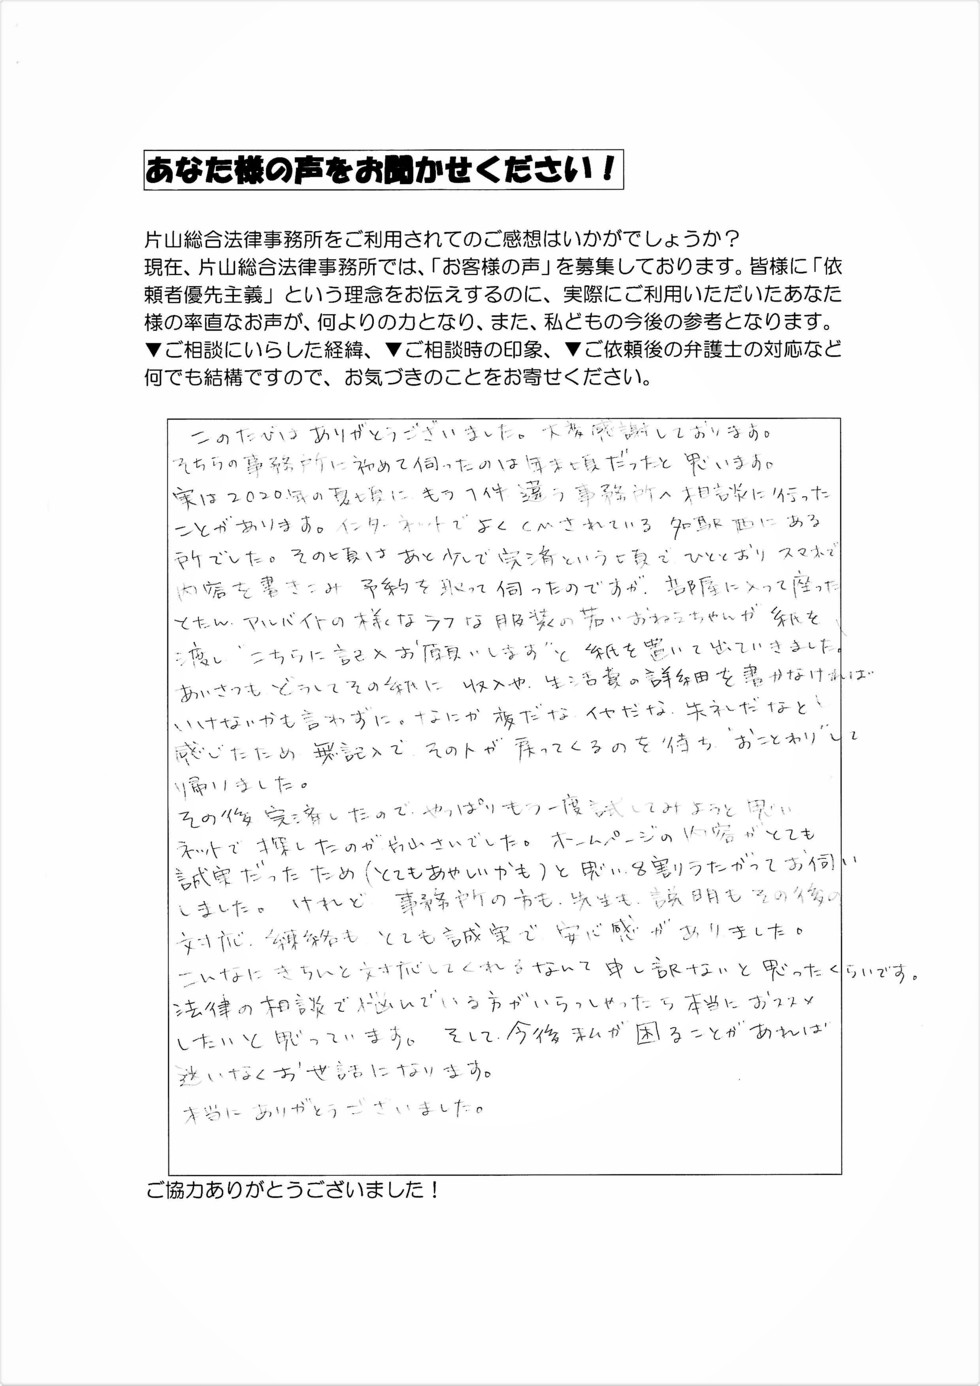 あなた様の声をお聞かせください！
片山総合法律事務所をご利用されてのご感想はいかがでしょうか？
現在、片山総合法律事務所では、「お客様の声」を募集しております。皆様に「依
頼者優先主義」という理念をお伝えするのに、実際にご利用いただいたあなた
様の率直なお声が、何よりの力となり、また、私どもの今後の参考となります。
▼ご相談にいらした経緯、▼ご相談時の印象、▼ご依頼後の弁護士の対応など
何でも結構ですので、お気づきのことをお寄せください。
このたびはありがとうございました。大変感謝しております。
そちらの事務所に初めて伺ったのは年末頃だったと思います。
実は2020年の夏頃に もう1件違う事務所へ相談に行った
ことがあります。インターネットでよくCMされている 名駅西にある
所でした。その頃はあと少しで完済という頃で ひととおり スマホで
内容を書きこみ 予約を取って伺ったのですが、部屋に入って座った
とたん、アルバイトの様なラフな服装の若いおねえちゃんが 紙を
渡し"こちらに記入お願いします"と 紙を置いて出ていきました。
あいさつも どうしてその紙に 収入や、生活費の詳細を書かなければ
いけないかも言わずに。なにか変だな、イヤだな、失礼だなと
感じたため 無記入で、その人が戻ってくるのを待ち"おことわり"して
帰りました。
その後完済したので、やっぱりもう一度試してみようと思い
ネットで探したのが片山さいでした。ホームページの内容がとても
誠実だったため(とてもあやしいかも)と思い、8割うたがってお伺い
しました。けれど 事務所の方も、先生も、説明も その後の
対応、連絡も とても誠実で 安心感がありました。
こんなにきちんと対応してくれるなんて申し訳ないと思ったくらいです。
法律の相談で悩んでいる方がいらっしゃったら本当におススメ
したいと思っています。そして、今後私が困ることがあれば
迷いなくお世話になります。
本当にありがとうございました。
ご協力ありがとうございました！